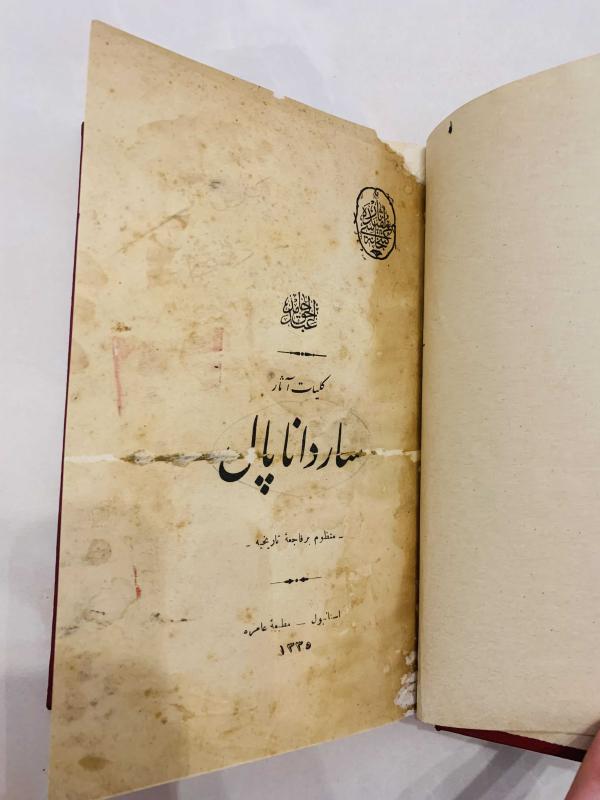 عبدالحق حامد
كلیات آثار
ساردانا پال
- منظوم بر فاجعهٔ تاریخیه -
استانبول — مطبعهٔ عامره
١٣٣٥